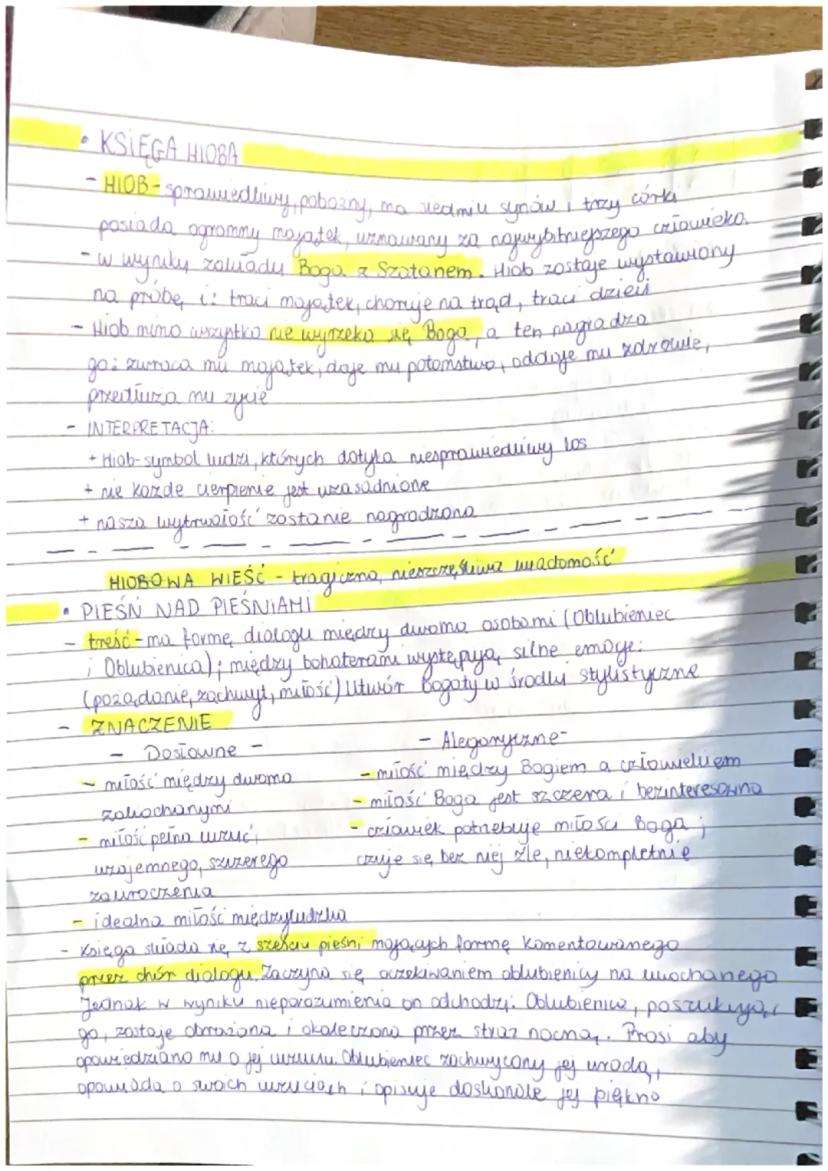 • KSIĘGA HIOBA
- HIOB - sprawiedliwy, pobożny, ma siedmiu synów i trzy córki
posiada ogromny majątek, uznawany za najwybitniejszego człowieka.
- w wyniku zakładu Boga z Szatanem. Hiob zostaje wystawiony
na próbę i: traci majątek, choruje na trąd, traci dzieci
- Hiob mimo wszystko nie wyrzeka się Boga, a ten nagradza
go: zwraca mu majątek, daje mu potomstwo, oddaje mu zdrowie,
przedłuża mu życie
- INTERPRETACJA:
+ Hiob-symbol ludzi, których dotyka niesprawiedliwy los
+ nie każde cierpienie jest uzasadnione
+ nasza wytrwałość zostanie nagrodzona
HIOBOWA WIEŚĆ - tragiczna, nieszczęśliwa wiadomość
• PIEŚŃ NAD PIEŚNIAMI
- treść - ma formę dialogu między dwoma osobami (Oblubieniec
i Oblubienica); między bohaterami występują silne emocje:
(pożądanie, zachwyt, miłość) Utwór bogaty w środki stylistyczne
- ZNACZENIE
- Dosłowne -
- miłość między dwoma
zakochanymi
- miłość pełna uczuć,
wzajemnego, szczerego
zauroczenia
- idealna miłość międzyludzka
- Alegoryczne-
- miłość między Bogiem a człowiekiem
- miłość Boga jest szczera i bezinteresowna
- człowiek potrzebuje miłości Boga;
czuje się bez niej źle, niekompletnie
- Księga składa się z sześciu pieśni mających formę komentowanego
przez chór dialogu. Zaczyna się oczekiwaniem oblubienicy na ukochanego
Jednak w wyniku nieporozumienia on odchodzi. Oblubienica, poszukując
go, zostaje obrażona i okaleczona przez straż nocną. Prosi aby
opowiedziano mu o jej uczuciu. Oblubieniec zachwycony jej urodą,
opowiada o swoich uczuciach i opisuje doskonale jej piękno